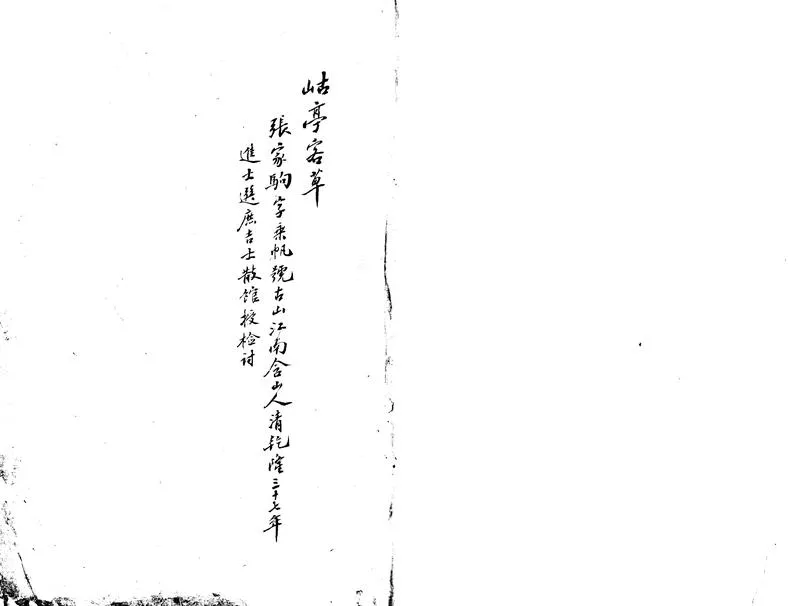 岵亭客草
張家駒字乘帆號古山江南含山人清乾隆三十七年
進士選庶吉士散馆授檢討